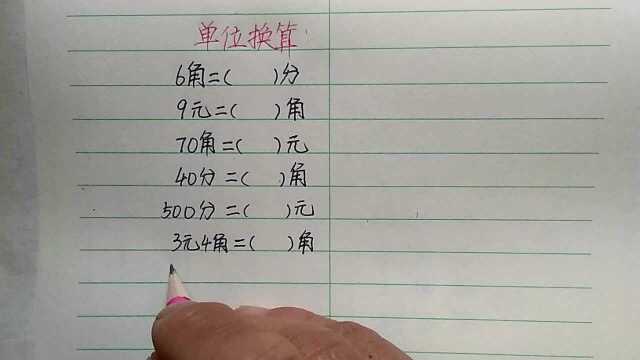 单位换算
6角=( )分
9元=( )角
70角=( )元
40分=( )角
500分=( )元
3元4角=( )角